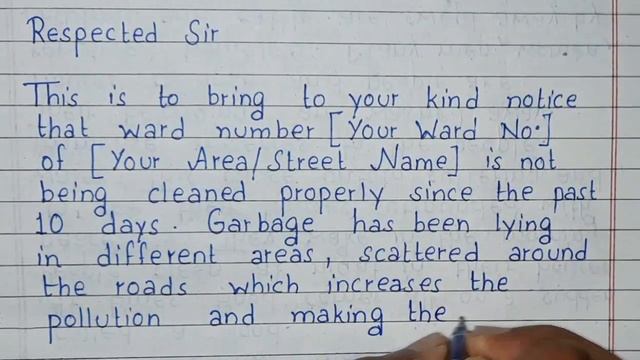 Respected Sir
This is to bring to your kind notice
that ward number [Your Ward No.]
of [Your Area/Street Name] is not
being cleaned properly since the past
10 days. Garbage has been lying
in different areas, scattered around
the roads which increases the
pollution and making the